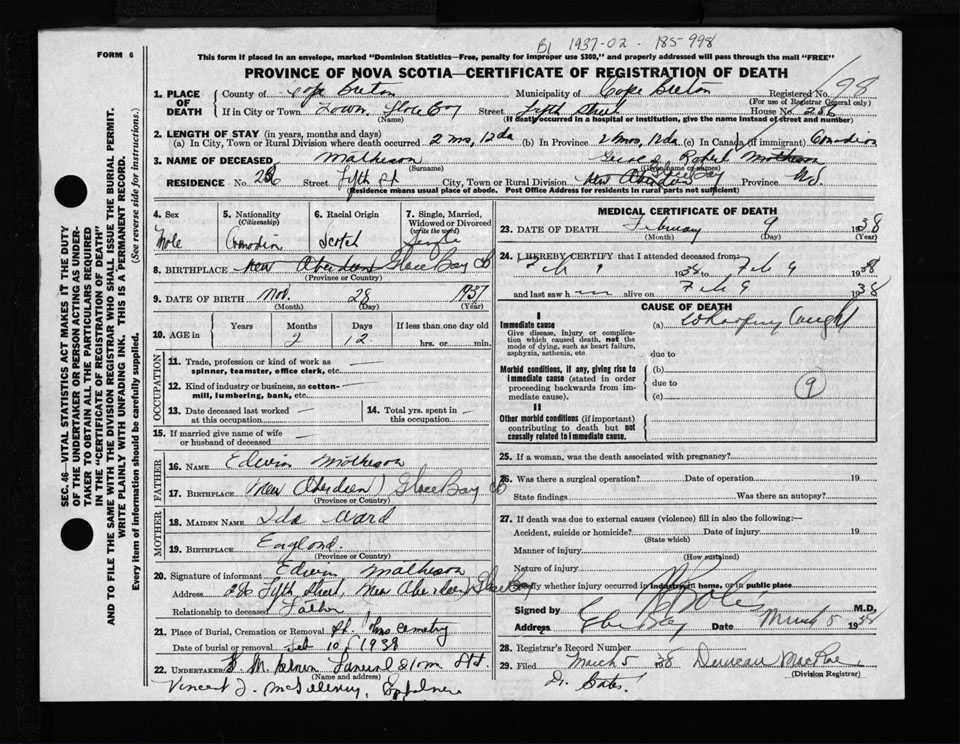 B1 1937-02- 185-998
FORM 6
This form if placed in an envelope, marked "Dominion Statistics—Free, penalty for improper use $300," and properly addressed will pass through the mail "FREE"
PROVINCE OF NOVA SCOTIA—CERTIFICATE OF REGISTRATION OF DEATH
SEC. 46—VITAL STATISTICS ACT MAKES IT THE DUTY
OF THE UNDERTAKER OR PERSON ACTING AS UNDER-
TAKER TO OBTAIN ALL THE PARTICULARS REQUIRED
IN THE "CERTIFICATE OF REGISTRATION OF DEATH"
AND TO FILE THE SAME WITH THE DIVISION REGISTRAR WHO SHALL ISSUE THE BURIAL PERMIT.
WRITE PLAINLY WITH UNFADING INK. THIS IS A PERMANENT RECORD.
Every item of information should be carefully supplied. (See reverse side for instructions.)
1. PLACE OF DEATH County of Cape Breton Municipality of Cape Breton Registered No. 98
(For use of Registrar General only)
If in City or Town Town, Glace Bay Street Fifth Street House No. 286
(Name) (If death occurred in a hospital or institution, give the name instead of street and number)
2. LENGTH OF STAY (in years, months and days)
(a) In City, Town or Rural Division where death occurred 2 mos, 12 da (b) In Province 2 mos, 12 da. (c) In Canada (if immigrant) Canadian
3. NAME OF DECEASED Matheson Robert Matheson
(Surname) (Given name or names)
RESIDENCE No. 286 Street Fifth St City, Town or Rural Division New Aberdeen Glace Bay Province N.S.
(Residence means usual place of abode. Post Office Address for residents in rural parts not sufficient)
4. Sex
Male
5. Nationality
(Citizenship)
Canadian
6. Racial Origin
Scotch
7. Single, Married,
Widowed or Divorced
(write the word)
Single
8. BIRTHPLACE New Aberdeen Glace Bay C B
(Province or Country)
9. DATE OF BIRTH Nov. 28 1937
(Month) (Day) (Year)
10. AGE in Years Months Days If less than one day old
2 12 hrs. or min.
OCCUPATION
11. Trade, profession or kind of work as
spinner, teamster, office clerk, etc.
12. Kind of industry or business, as cotton-
mill, lumbering, bank, etc.
13. Date deceased last worked
at this occupation
14. Total yrs. spent in
this occupation
15. If married give name of wife
or husband of deceased
FATHER
16. NAME Edwin Matheson
17. BIRTHPLACE New Aberdeen Glace Bay C B
(Province or Country)
MOTHER
18. MAIDEN NAME Ida Ward
19. BIRTHPLACE England
(Province or Country)
20. Signature of informant Edwin Matheson
Address 286 Fifth Street, New Aberdeen, Glace Bay
Relationship to deceased Father
21. Place of Burial, Cremation or Removal cemetery
Date of burial or removal Feb 10, 1938
22. UNDERTAKER Funeral
(Name and address)
Vincent J.
MEDICAL CERTIFICATE OF DEATH
23. DATE OF DEATH February 9 1938
(Month) (Day) (Year)
24. I HEREBY CERTIFY that I attended deceased from:
Feb 9 1938 to Feb 9 1938
and last saw him alive on Feb 9 1938
CAUSE OF DEATH
I
Immediate cause (a) Whooping Cough
Give disease, injury or complica-
tion which caused death, not the
mode of dying, such as heart failure,
asphyxia, asthenia, etc.
due to
Morbid conditions, if any, giving rise to (b)
immediate cause (stated in order due to
proceeding backwards from im- (c)
mediate cause).
9
II
Other morbid conditions (if important)
contributing to death but not
causally related to immediate cause.
25. If a woman, was the death associated with pregnancy?
26. Was there a surgical operation? Date of operation 19
State findings Was there an autopsy?
27. If death was due to external causes (violence) fill in also the following:—
Accident, suicide or homicide? Date of injury 19
(State which)
Manner of injury
(How sustained)
Nature of injury
Specify whether injury occurred in industry, in home, or in public place
Signed by M.D.
Address Date March 5 1938
28. Registrar's Record Number
29. Filed March 5 38 Duncan MacRae
(Division Registrar)
Dr.